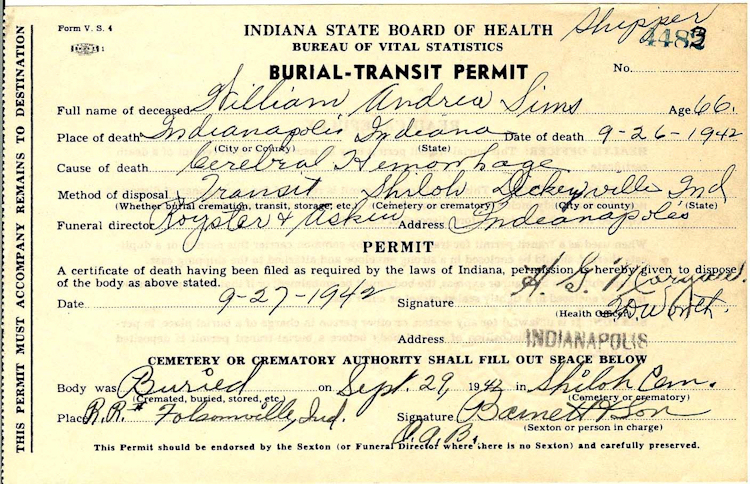 THIS PERMIT MUST ACCOMPANY REMAINS TO DESTINATION
Form V. S. 4
INDIANA STATE BOARD OF HEALTH
Shipper
BUREAU OF VITAL STATISTICS
BURIAL-TRANSIT PERMIT
No.
Full name of deceased William Andrea Sims Age 66.
Place of death Indianapolis Indiana Date of death 9-26-1942
(City or County) (State)
Cause of death Cerebral Hemorhage
Method of disposal Transit Shiloh Dickeyville Ind
(Whether burial cremation, transit, storage, etc.) (Cemetery or crematory) (City or county) (State)
Funeral director Royster & Askin Address Indianapolis
PERMIT
A certificate of death having been filed as required by the laws of Indiana, permission is hereby given to dispose
of the body as above stated.
Date 9-27-1942 Signature H. G.
(Health Officer)
Address INDIANAPOLIS
CEMETERY OR CREMATORY AUTHORITY SHALL FILL OUT SPACE BELOW
Body was Buried on Sept. 29, 1942 in Shiloh Cem.
(Cremated, buried, stored, etc.) (Cemetery or crematory)
Place R.R. Folsomville, Ind. Signature Barnett & Son
(Sexton or person in charge)
C.A.B.
This Permit should be endorsed by the Sexton (or Funeral Director where there is no Sexton) and carefully preserved.